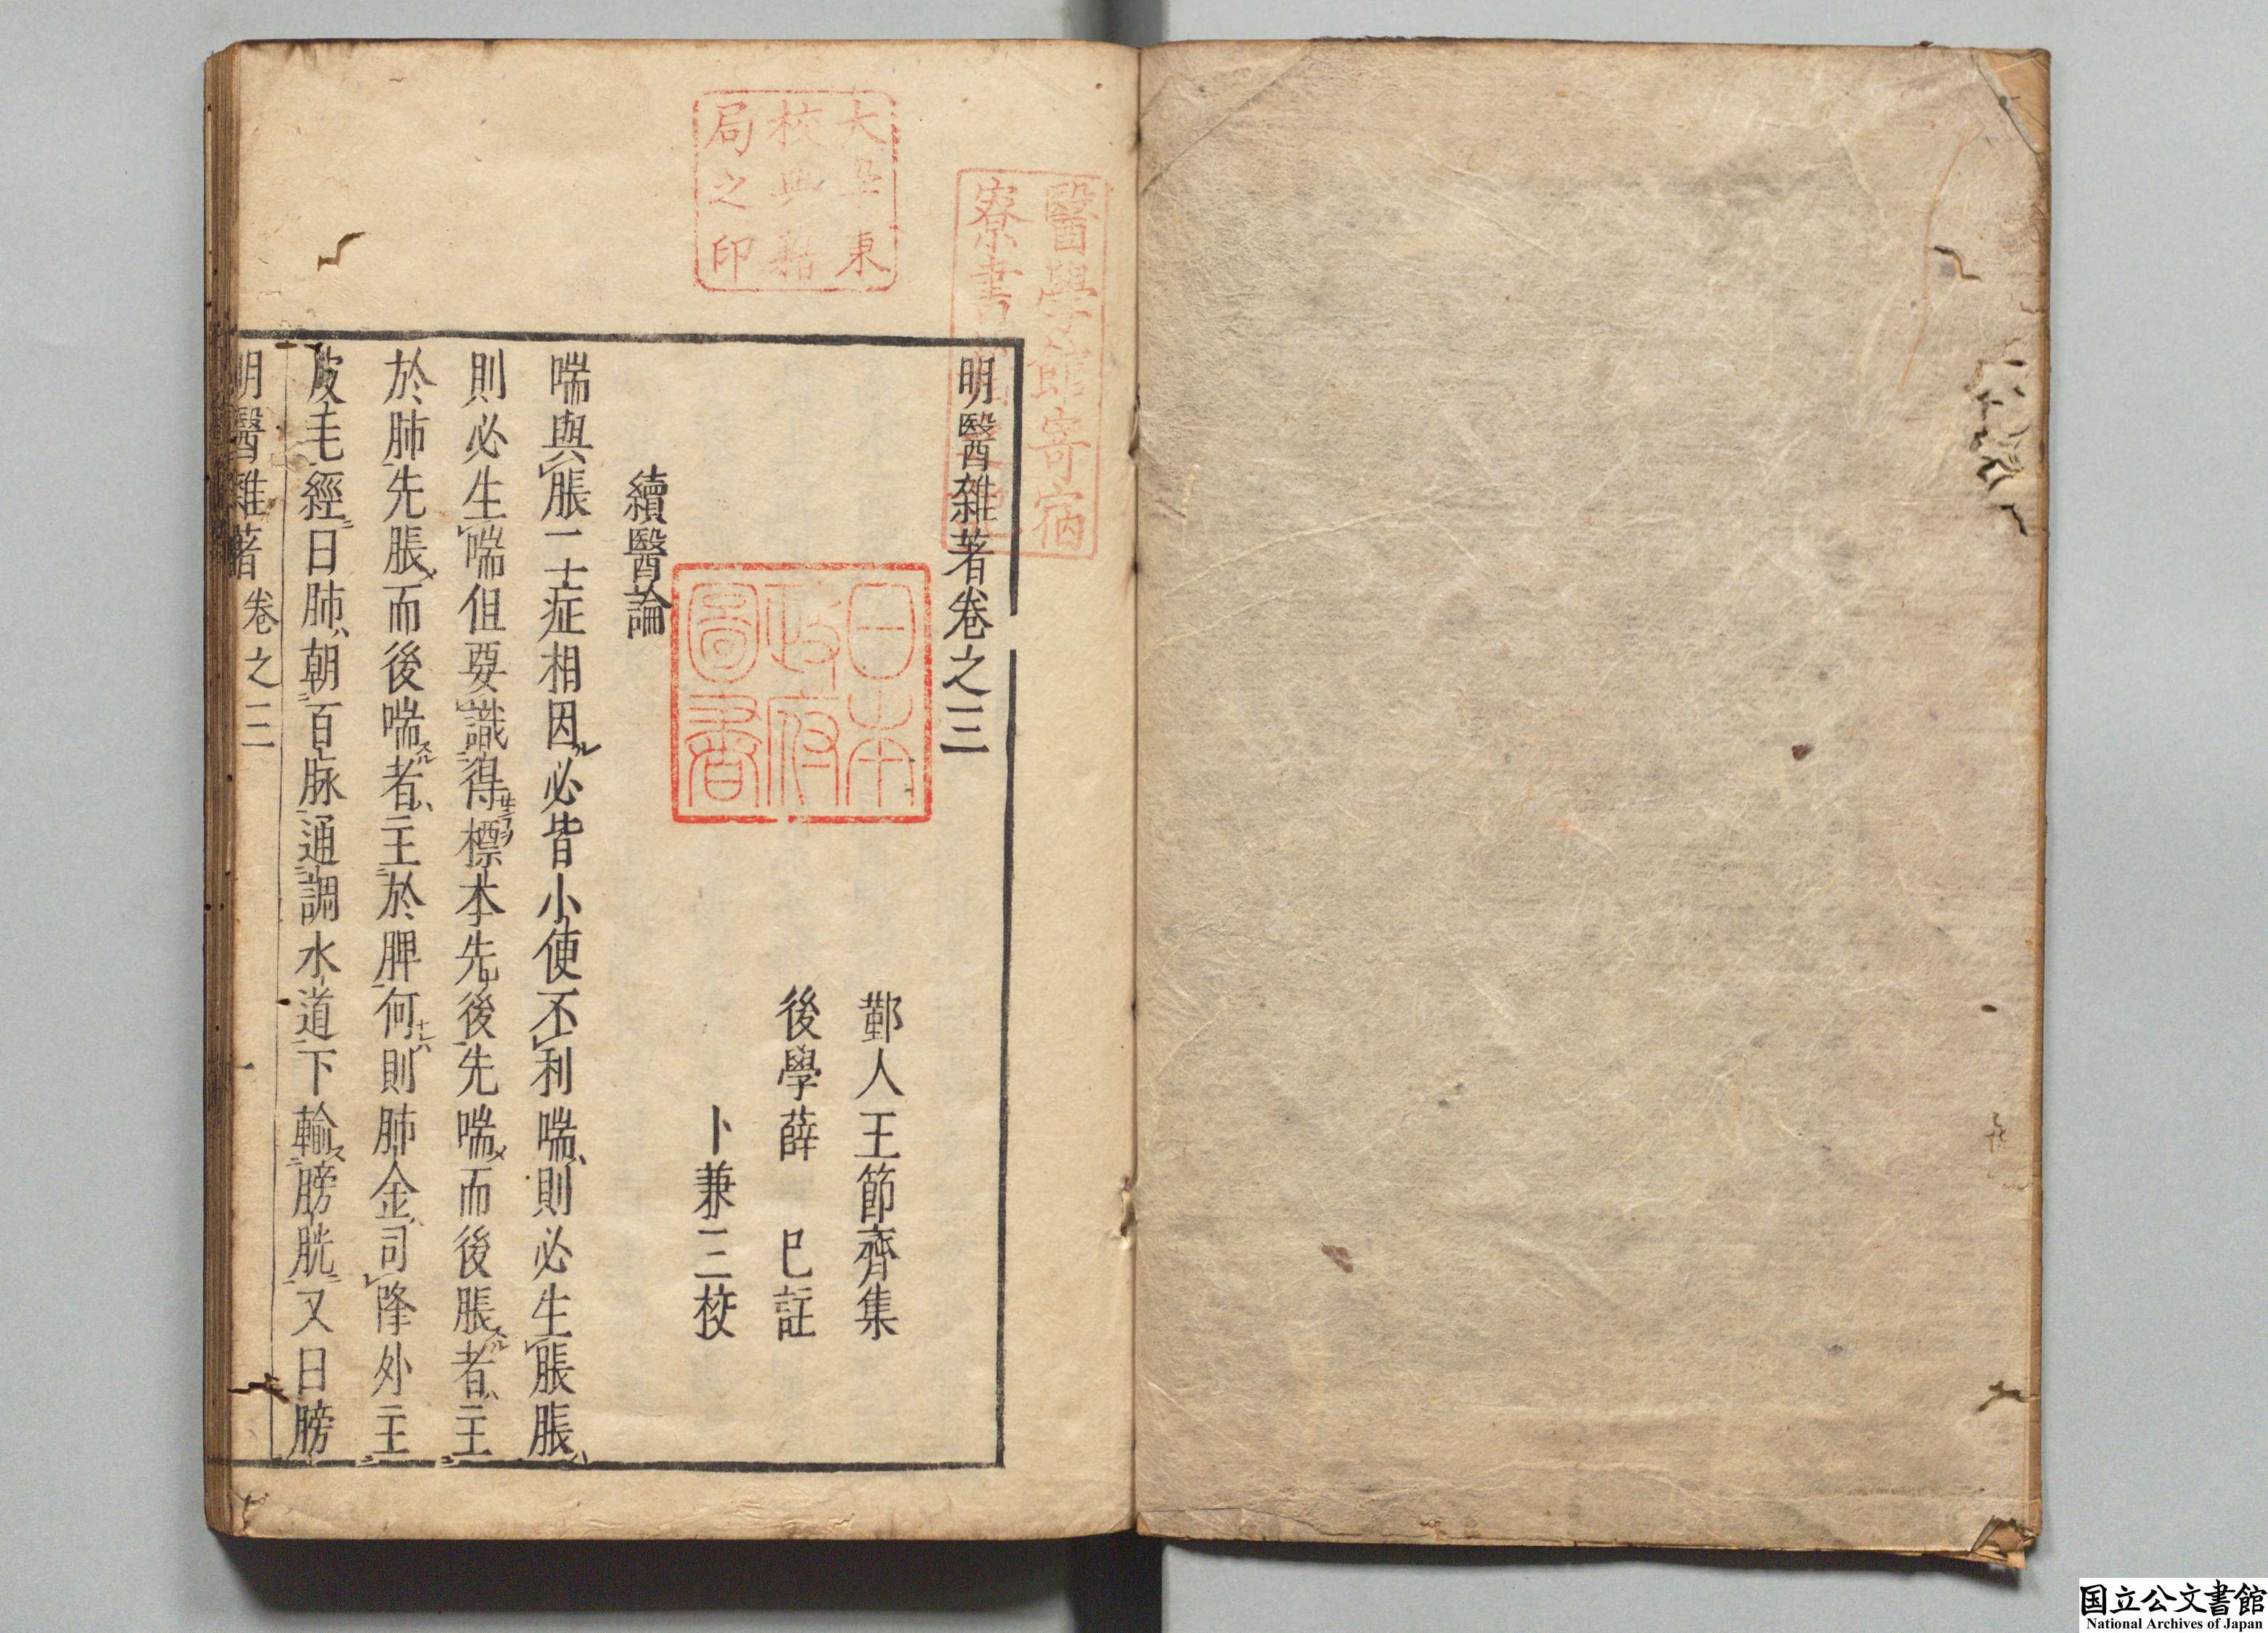 明醫雜著卷之三
鄞人王節齊集
後學薛 巳註
卜兼三校
續醫論
喘與脹二症相因必皆小便不利喘則必生脹脹
則必生喘但要識得標本先後先喘而後脹者主
於肺先脹而後喘者主於脾何則肺金司降外主
皮毛經曰肺朝百脉通調水道下輸膀胱又曰膀
明醫雜著 卷之三
大學東
校典籍
局之印
醫學館寄宿
寮書
日本
政府
圖書
国立公文書館
National Archives of Japan